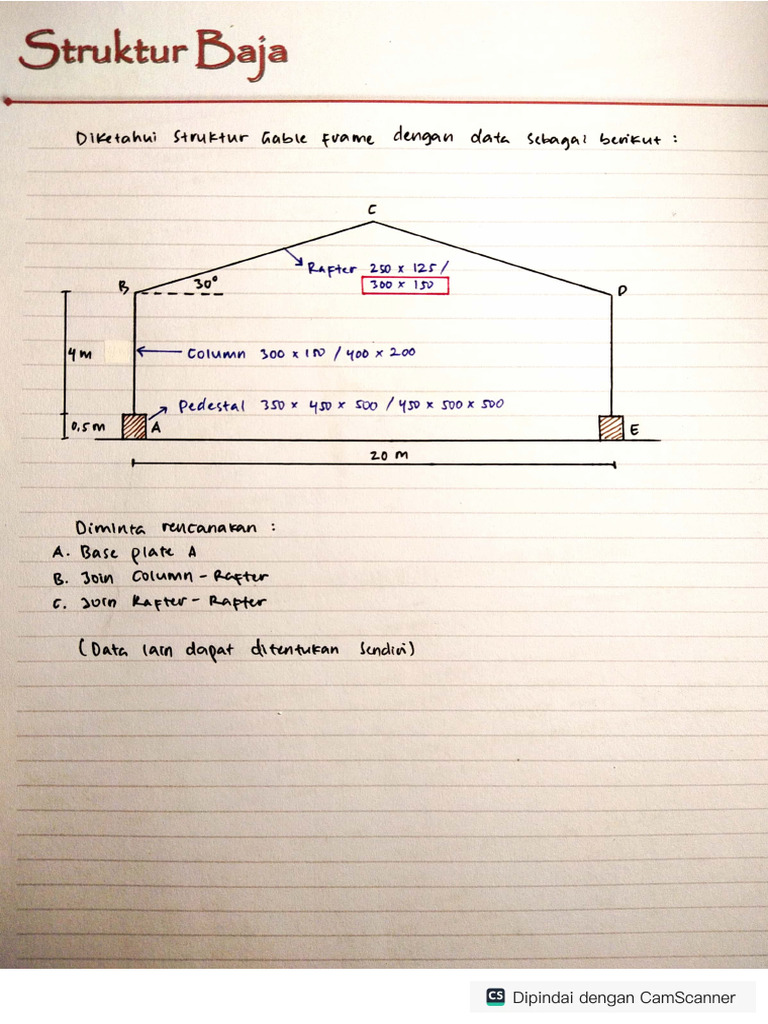 Struktur Baja
Diketahui Struktur Gable Frame dengan data sebagai berikut :
C
Rafter 250 x 125 /
300 x 150
B
30°
D
4 m
Column 300 x 150 / 400 x 200
Pedestal 350 x 450 x 500 / 450 x 500 x 500
0,5 m
A
E
20 m
Diminta rencanakan :
A. Base plate A
B. Join Column - Rafter
C. Join Rafter - Rafter
(Data lain dapat ditentukan sendiri)
CS Dipindai dengan CamScanner